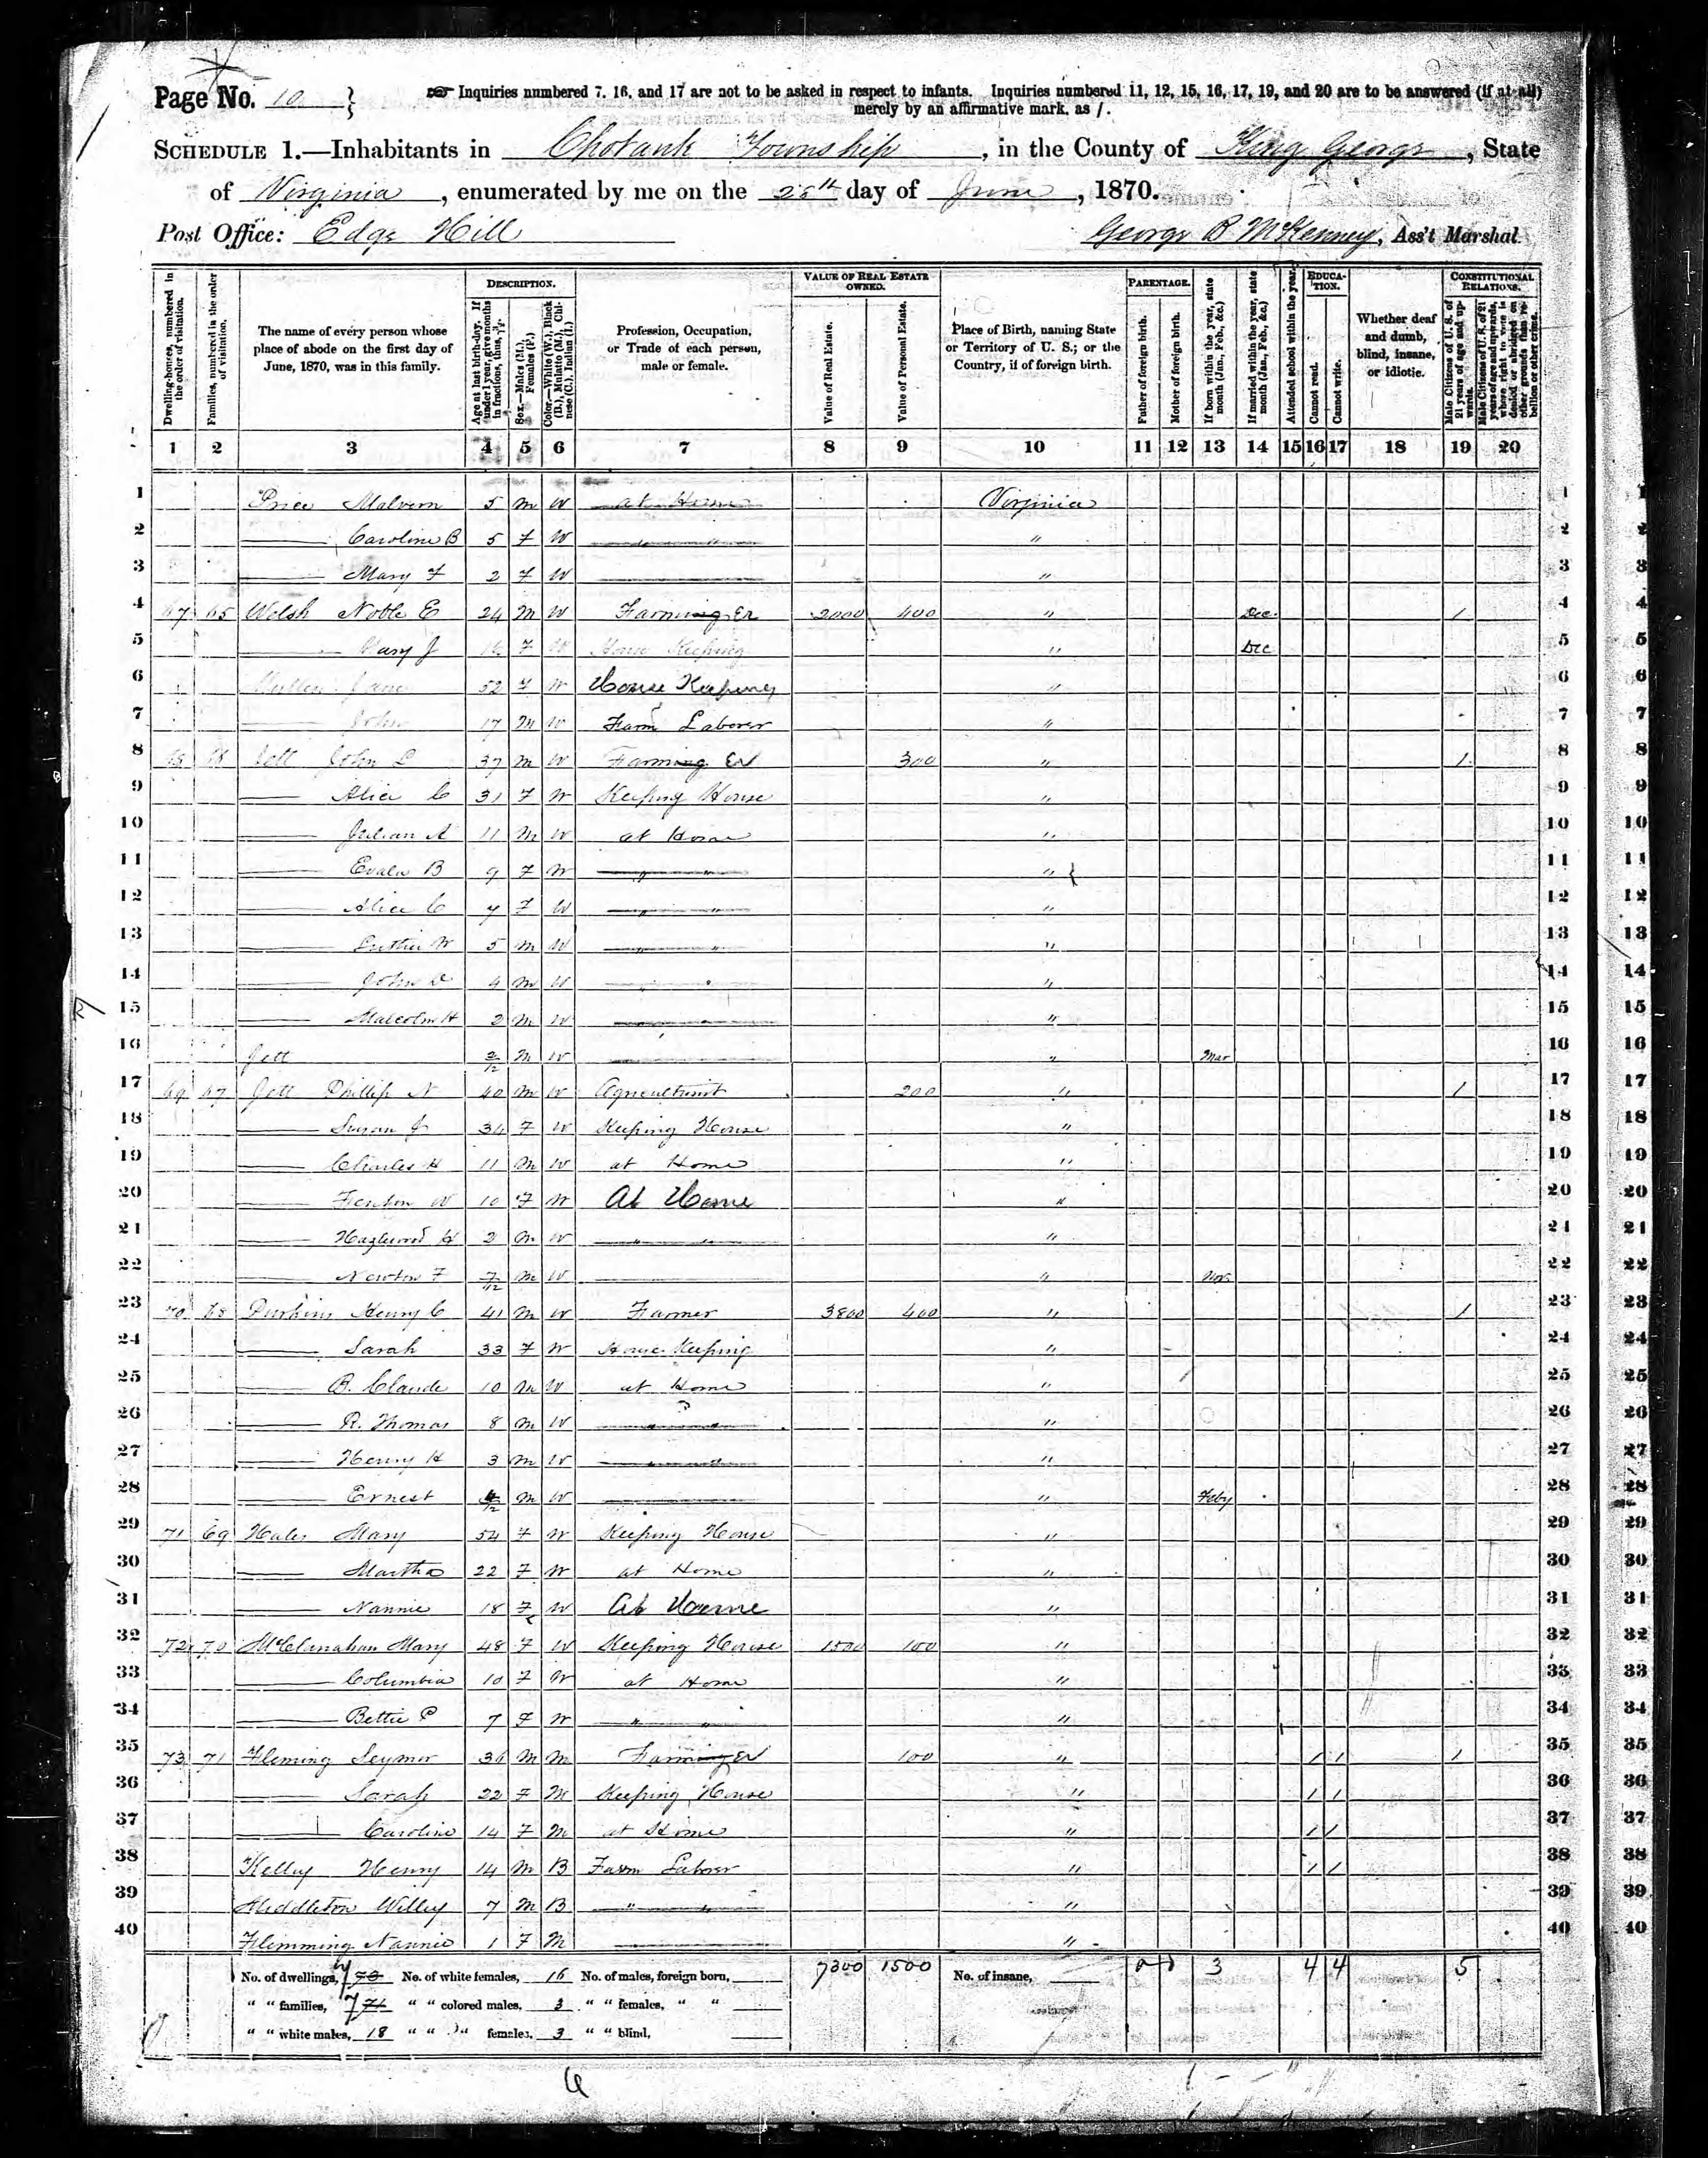 Page No. 10 }
Inquiries numbered 7, 16, and 17 are not to be asked in respect to infants. Inquiries numbered 11, 12, 15, 16, 17, 19, and 20 are to be answered (if at all)
merely by an affirmative mark, as /.
SCHEDULE 1.—Inhabitants in Chotank Township, in the County of King George, State
of Virginia, enumerated by me on the 28th day of June, 1870.
Post Office: Edge Hill
George B McKenney, Ass't Marshal.
Dwelling-houses, numbered in the order of visitation.
Families, numbered in the order of visitation.
The name of every person whose place of abode on the first day of June, 1870, was in this family.
DESCRIPTION.
Age at last birth-day. If under 1 year, give months in fractions, thus, 3/12.
Sex.—Males (M.), Females (F.)
Color.—White (W.), Black (B.), Mulatto (M.), Chinese (C.), Indian (I.)
Profession, Occupation, or Trade of each person, male or female.
VALUE OF REAL ESTATE OWNED.
Value of Real Estate.
Value of Personal Estate.
Place of Birth, naming State or Territory of U. S.; or the Country, if of foreign birth.
PARENTAGE.
Father of foreign birth.
Mother of foreign birth.
If born within the year, state month (Jan., Feb., &c.)
If married within the year, state month (Jan., Feb., &c.)
Attended school within the year.
EDUCATION.
Cannot read.
Cannot write.
Whether deaf and dumb, blind, insane, or idiotic.
CONSTITUTIONAL RELATIONS.
Male Citizens of U. S. of 21 years of age and upwards.
Male Citizens of U. S. of 21 years of age and upwards, whose right to vote is denied or abridged on other grounds than rebellion or other crime.
1 2 3 4 5 6 7 8 9 10 11 12 13 14 15 16 17 18 19 20
1 Price Malvern 5 M W at Home Virginia 1
2 Caroline B 5 F W " 2
3 Mary F 2 F W " 3
4 67 65 Welsh Noble E 24 M W Farming Er 2000 400 " Dec 1 4
5 Mary J F W House Keeping " Dec 5
6 Mullen Jane 52 F W House Keeping " 6
7 John 17 M W Farm Laborer " 7
8 68 66 Jett John L 37 M W Farming Er 300 " 1 8
9 Alice C 31 F W Keeping House " 9
10 Julian A 11 M W at Home " 10
11 B 9 F W " " " 11
12 Alice C 7 F W " " " 12
13 Luther W 5 M W " " " 13
14 John 4 M W " " " 14
15 Malcolm H 2 M W " 15
16 Jett 2/12 M W " Mar 16
17 69 67 Jett Phillip N 40 M W Agriculturist 200 " 1 17
18 Susan J 34 F W Keeping House " 18
19 Charles H 11 M W at Home " 19
20 Fenton W 10 F W At Home " 20
21 Hazlewood H 2 M W " " " 21
22 Newton F 7/12 M W " Nov 22
23 70 68 Perkins Henry C 41 M W Farmer 3800 400 " 1 23
24 Sarah 33 F W House Keeping " 24
25 B. Claude 10 M W at Home " 25
26 R. Thomas 8 M W " " " 26
27 Henry H 3 M W " " " 27
28 Ernest 4/12 M W " Feby 28
29 71 69 Hales Mary 54 F W Keeping House " 29
30 Martha 22 F W at Home " 30
31 Nannie 18 F W At Home " 31
32 72 70 McClanahan Mary 48 F W Keeping House 1500 100 " 32
33 Columbia 10 F W at Home " 33
34 Bettie P 7 F W " " " 34
35 73 71 Fleming Seymor 36 M M Farming Er 100 " / / 1 35
36 Sarah 22 F M Keeping House " / / 36
37 Caroline 14 F M at Home " / / 37
38 Kelley Henry 14 M B Farm Laborer " / / 38
39 Middleton Willey 7 M B " " " 39
40 Flemming Nannie 1 F M " 40
No. of dwellings, 7 73 No. of white females, 16 No. of males, foreign born, 7300 1500 No. of insane, 0 0 3 4 4 5
" " families, 7 71 " " colored males, 3 " " females, " "
" " white males, 18 " " " females, 3 " " blind,